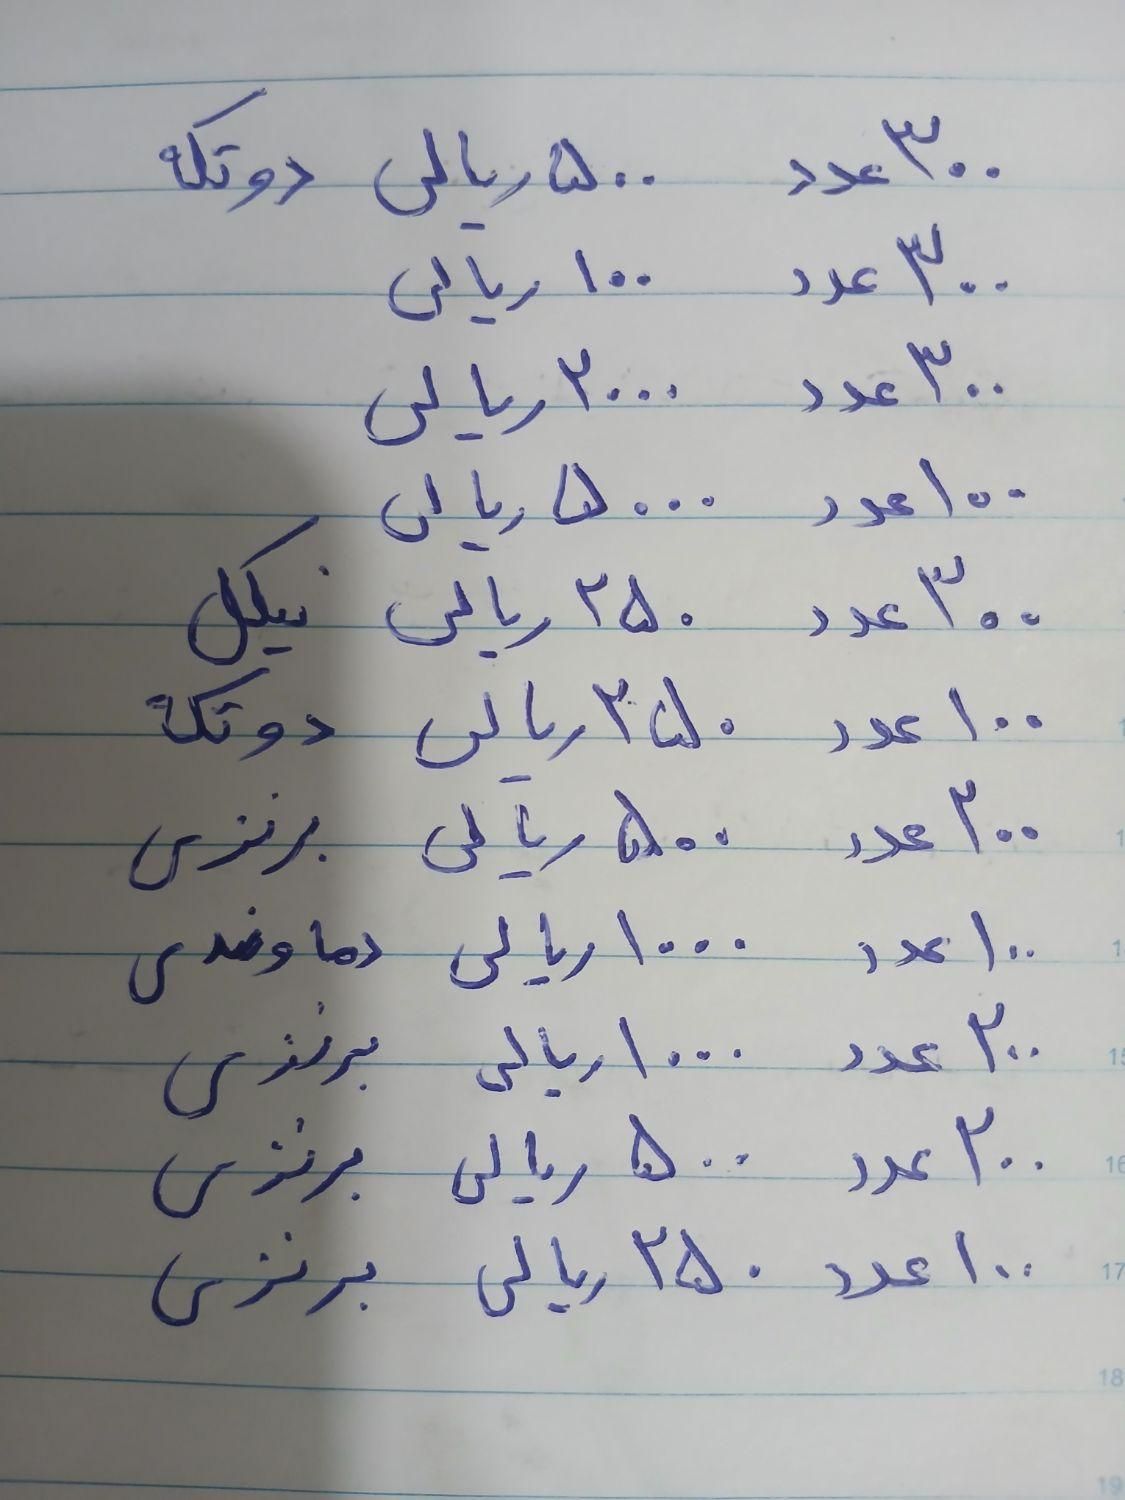 ۳۰۰ عدد ۵۰۰ ریالی دوتکه
۳۰۰ عدد ۱۰۰ ریالی
۳۰۰ عدد ۲۰۰۰ ریالی
۱۰۰ عدد ۵۰۰۰ ریالی
۳۰۰ عدد ۲۵۰ ریالی نیکل
۱۰۰ عدد ۲۵۰ ریالی دوتکه
۲۰۰ عدد ۵۰۰ ریالی برنزی
۱۰۰ عدد ۱۰۰۰ ریالی دماوندی
۲۰۰ عدد ۱۰۰۰ ریالی برنزی
۲۰۰ عدد ۵۰۰ ریالی برنزی
۱۰۰ عدد ۲۵۰ ریالی برنزی
15
16
17
18
19